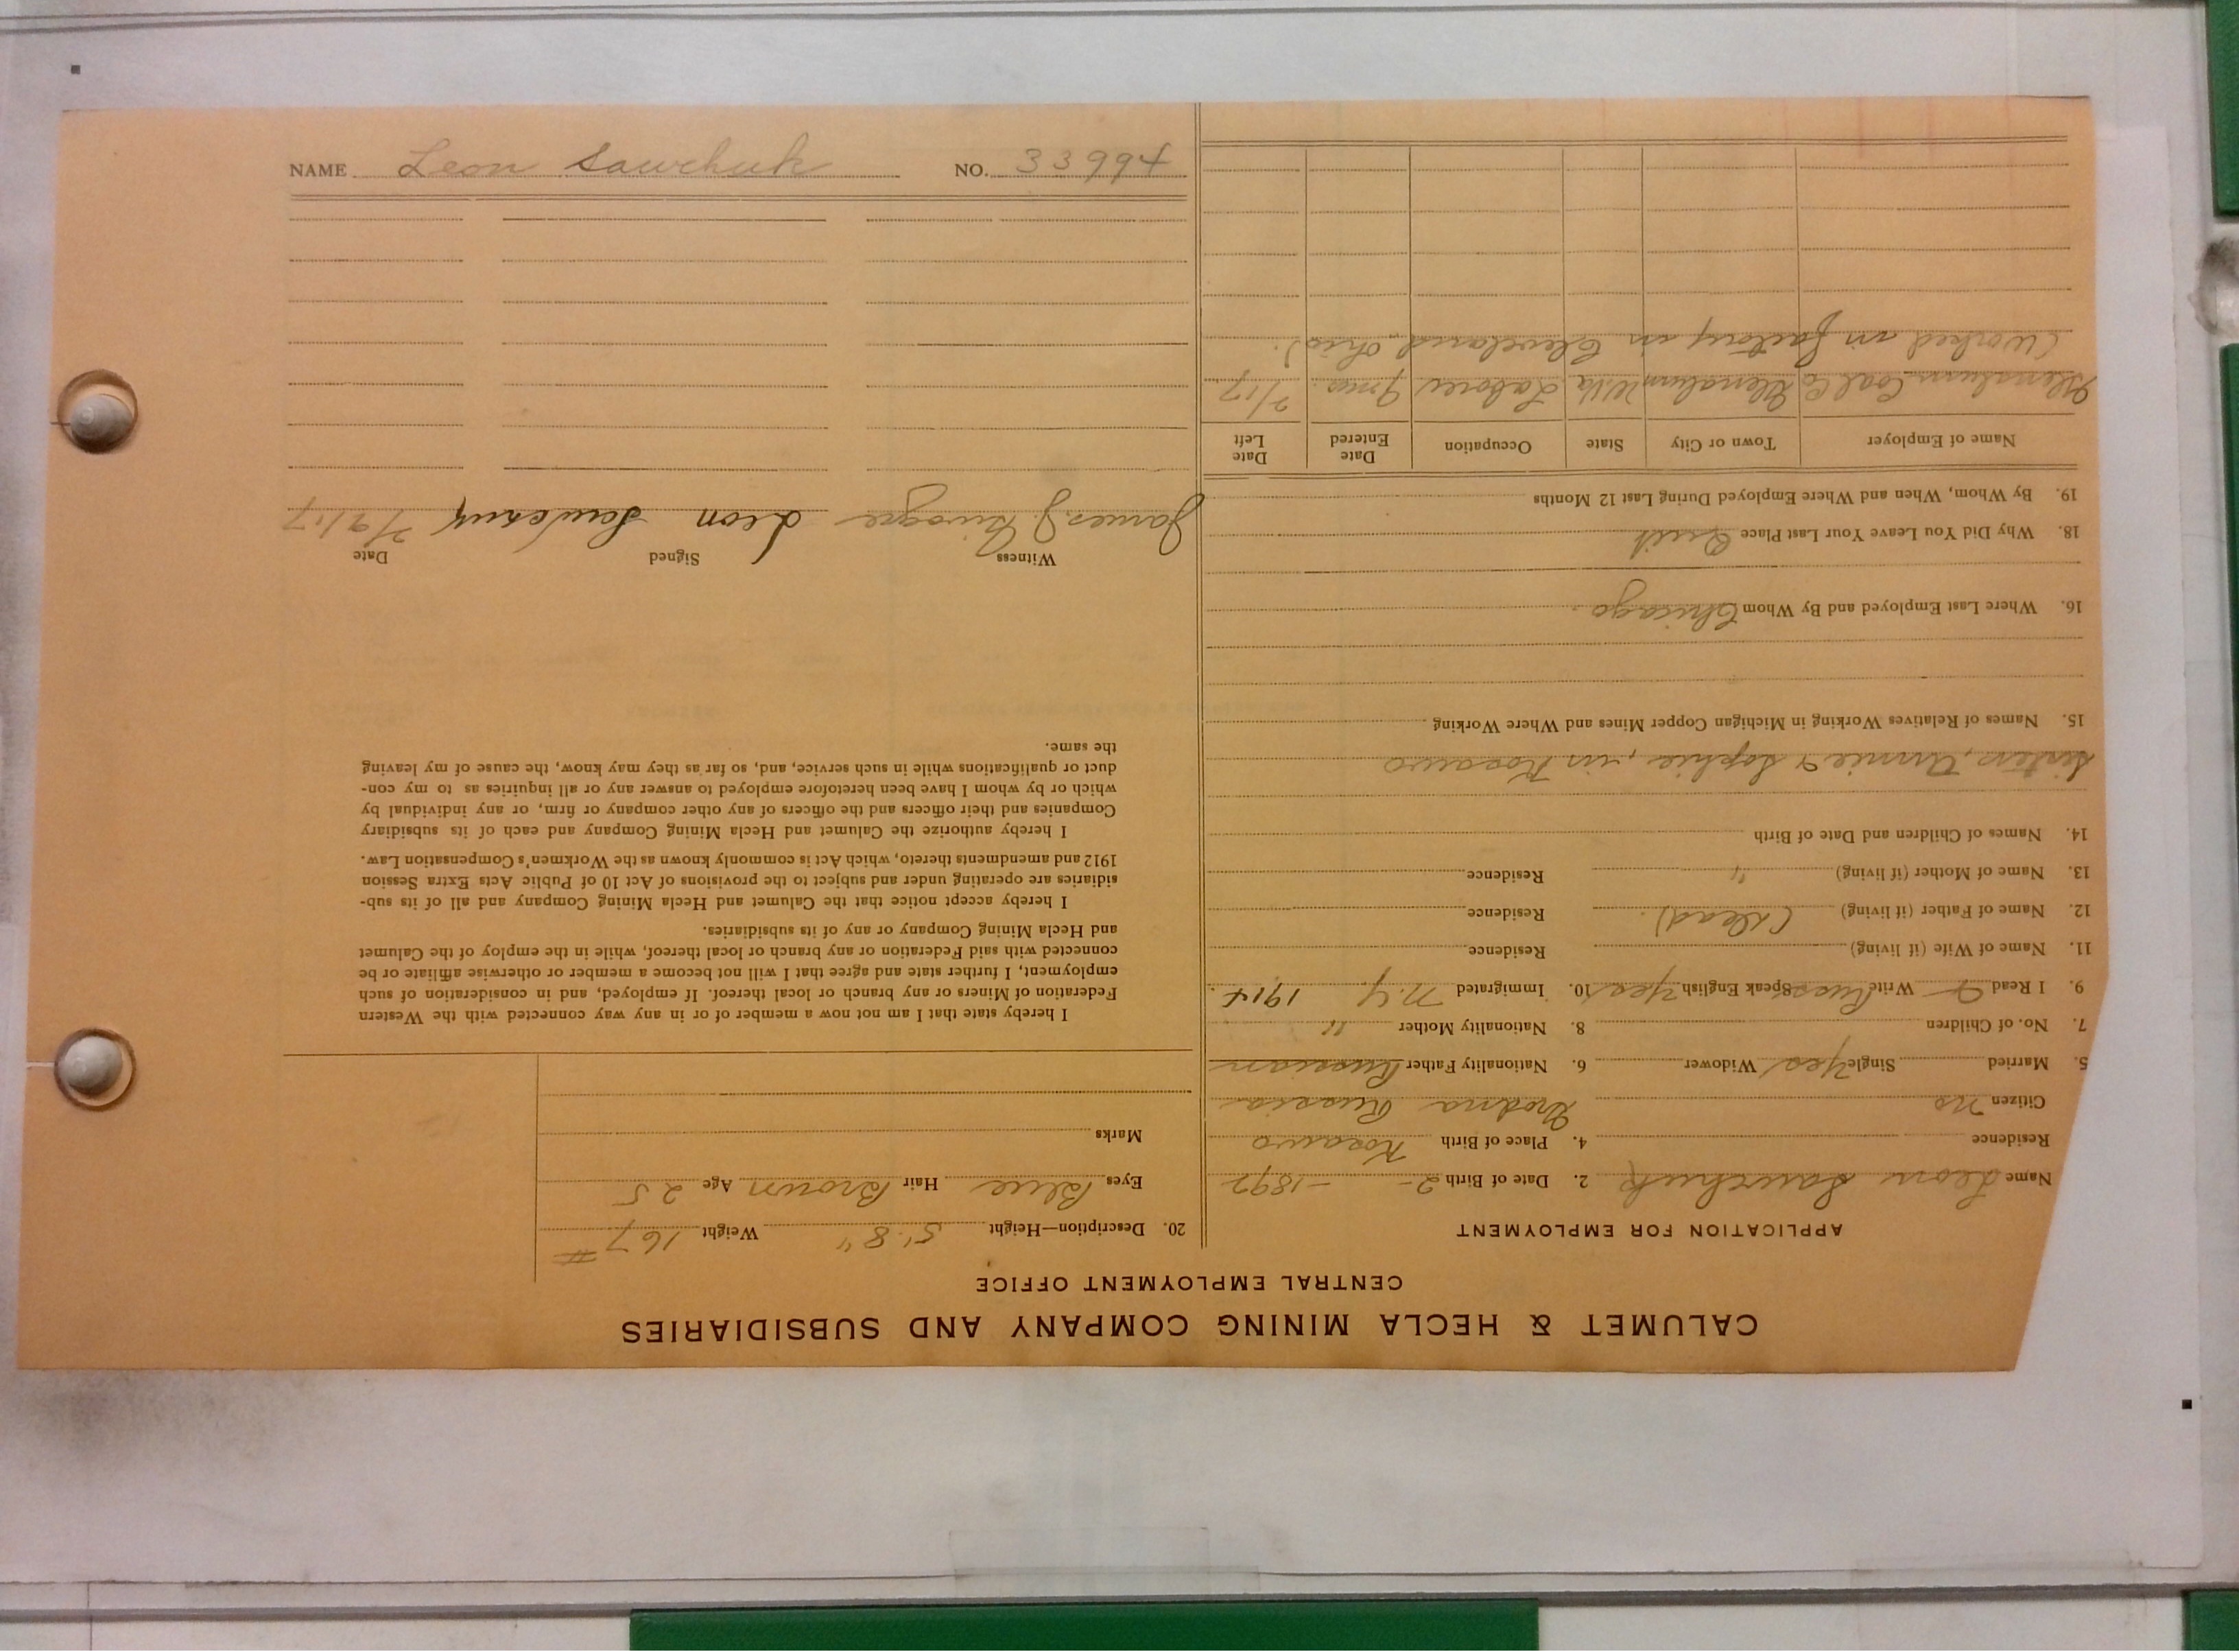 CALUMET & HECLA MINING COMPANY AND SUBSIDIARIES
CENTRAL EMPLOYMENT OFFICE
APPLICATION FOR EMPLOYMENT
Name Leon Sawchuk 2. Date of Birth 2 - - 1892
Residence 4. Place of Birth Kosawo
Citizen no Grodna Russia
5. Married Single Yes Widower 6. Nationality Father Russian
7. No. of Children 8. Nationality Mother "
9. I Read & Write Russ Speak English Yes 10. Immigrated N.Y. 1914.
11. Name of Wife (if living) Residence
12. Name of Father (if living) (Dead). Residence
13. Name of Mother (if living) " Residence
14. Names of Children and Date of Birth
Sisters, Annie & Sophie, in Kosawo
15. Names of Relatives Working in Michigan Copper Mines and Where Working
16. Where Last Employed and By Whom Chicago.
18. Why Did You Leave Your Last Place Quit
19. By Whom, When and Where Employed During Last 12 Months
Name of Employer Town or City State Occupation Date Entered Date Left
Glenalum Coal Co Glenalum W.Va Laborer 9 mos. 7/17
(Worked in factory in Cleveland, Ohio).
20. Description—Height 5' 8" Weight 167 #
Eyes Blue Hair Brown Age 25
Marks
I hereby state that I am not now a member of or in any way connected with the Western
Federation of Miners or any branch or local thereof. If employed, and in consideration of such
employment, I further state and agree that I will not become a member or otherwise affiliate or be
connected with said Federation or any branch or local thereof, while in the employ of the Calumet
and Hecla Mining Company or any of its subsidiaries.
I hereby accept notice that the Calumet and Hecla Mining Company and all of its sub-
sidiaries are operating under and subject to the provisions of Act 10 of Public Acts Extra Session
1912 and amendments thereto, which Act is commonly known as the Workmen's Compensation Law.
I hereby authorize the Calumet and Hecla Mining Company and each of its subsidiary
Companies and their officers and the officers of any other company or firm, or any individual by
which or by whom I have been heretofore employed to answer any or all inquiries as to my con-
duct or qualifications while in such service, and, so far as they may know, the cause of my leaving
the same.
Witness Signed Date
James J. Leon 7/9/17
NAME Leon Sawchuk NO. 33994